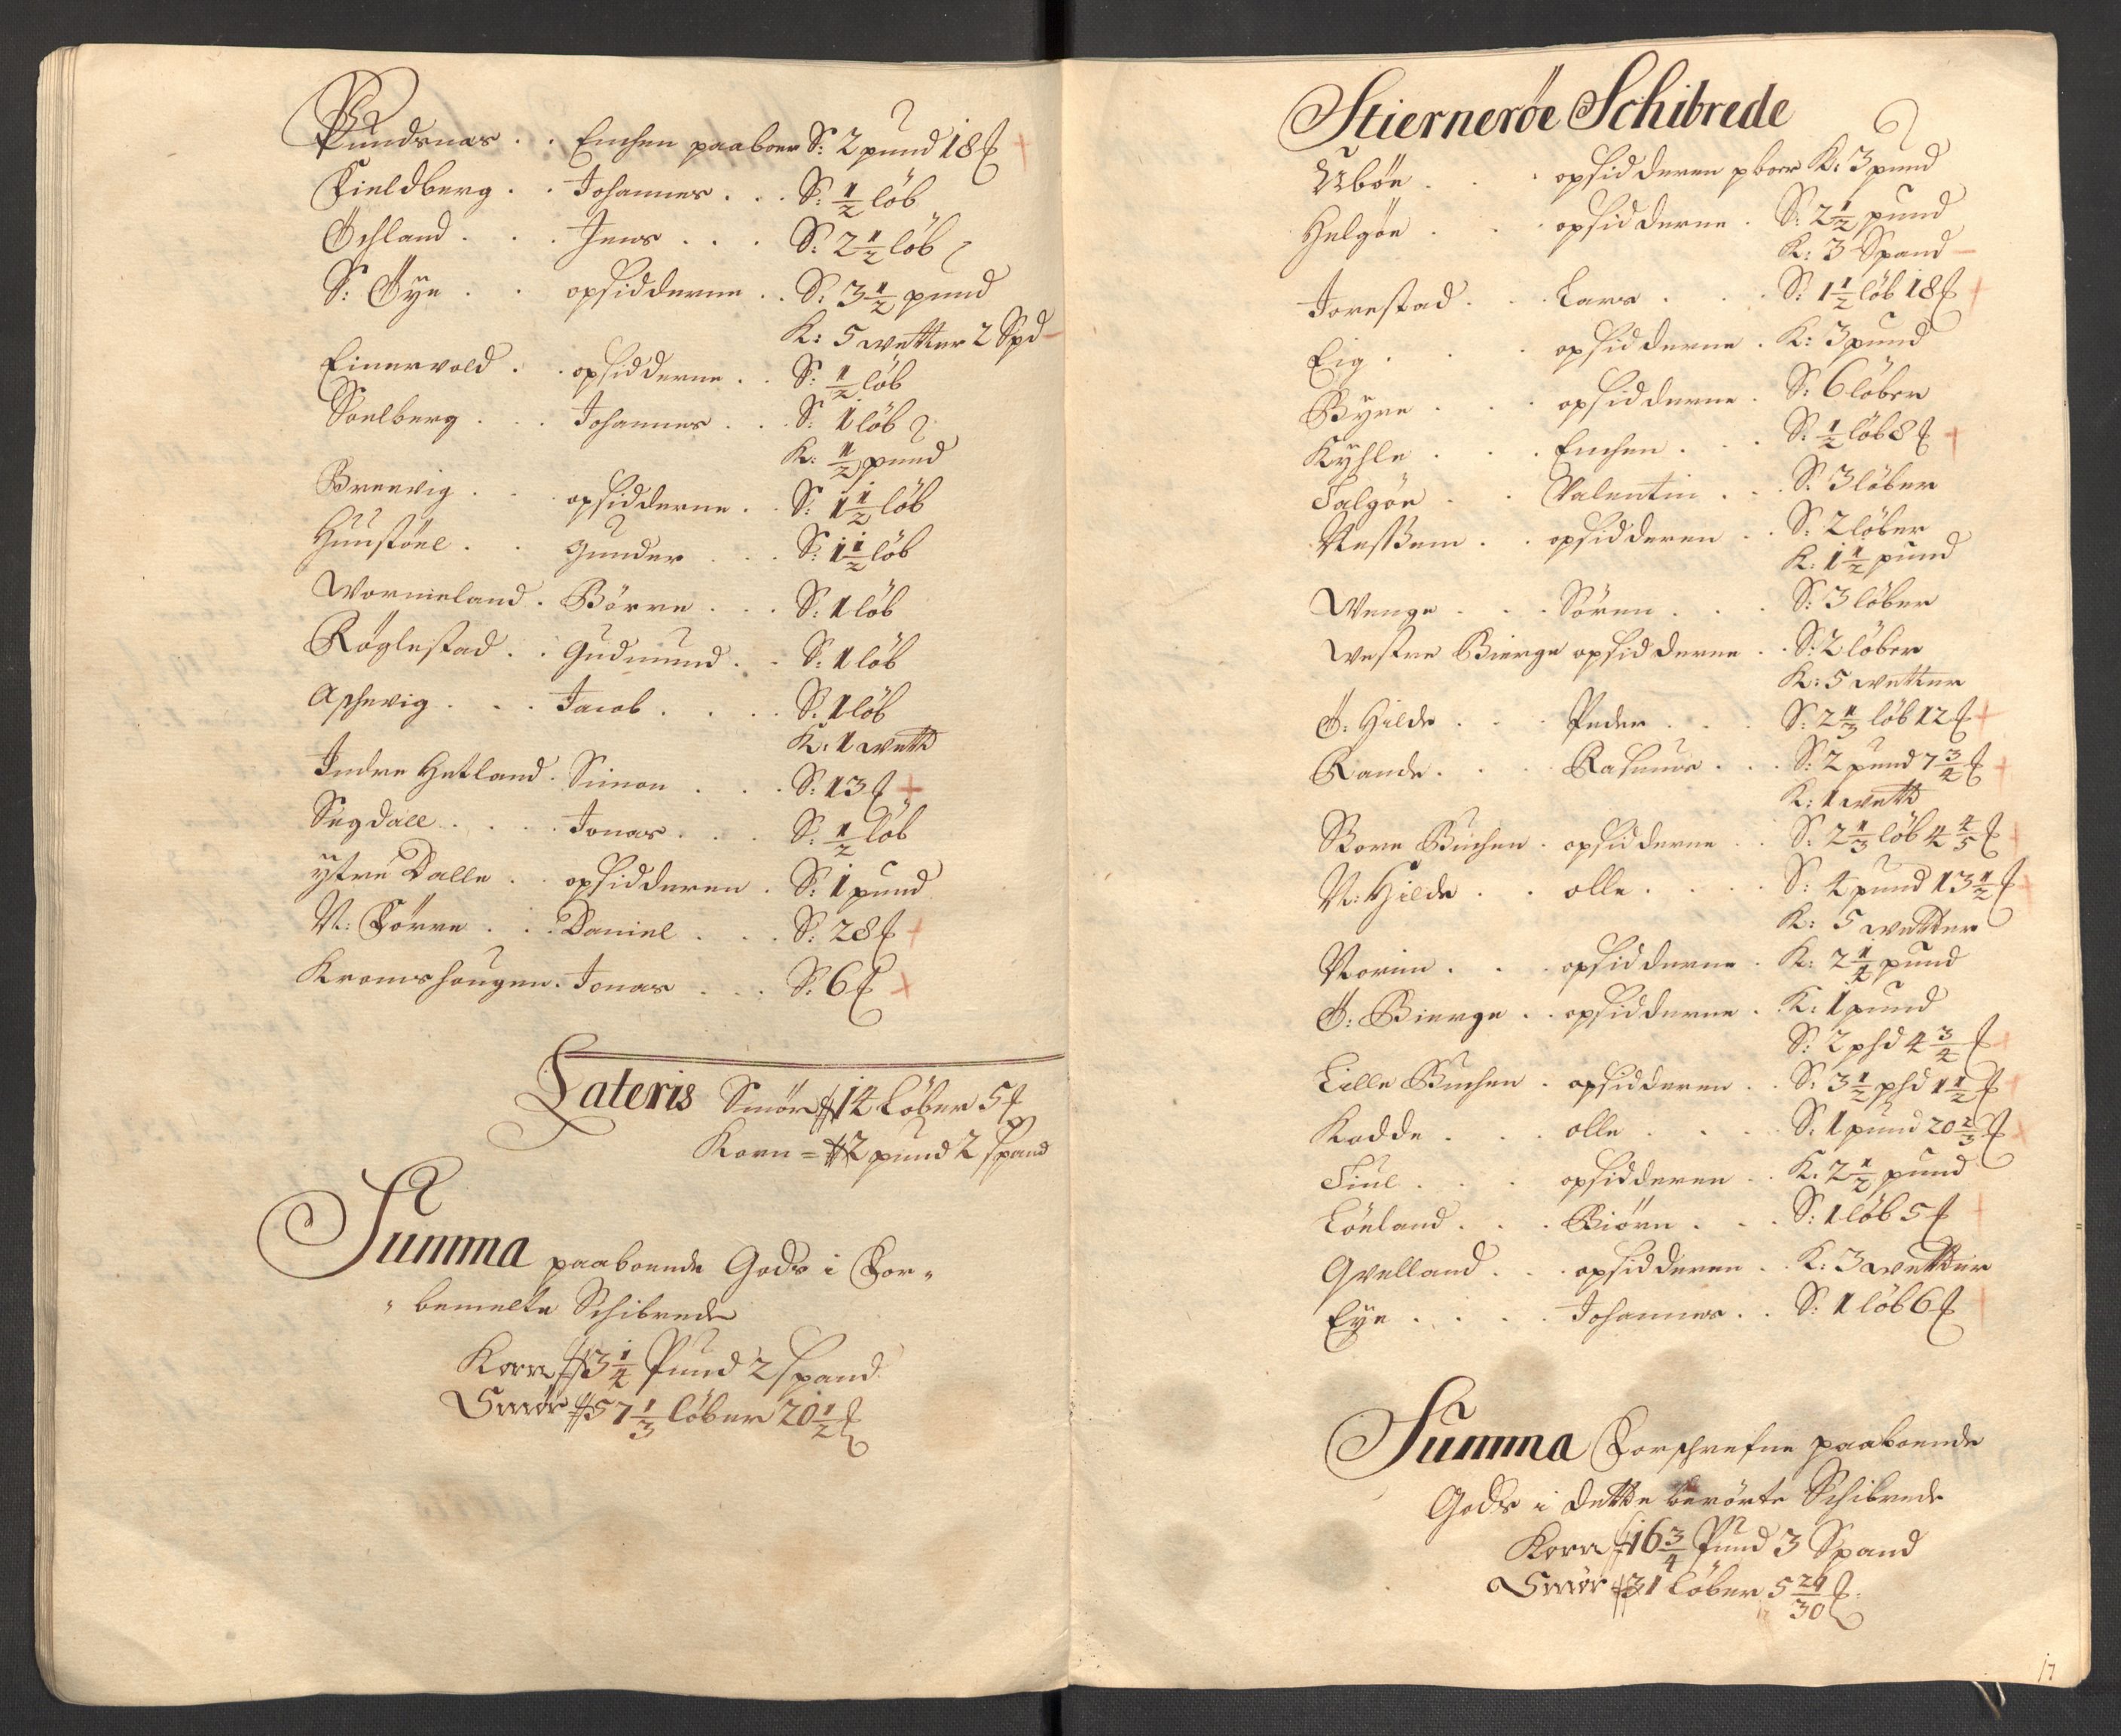 Pundsnes . . Enchen paaboer S: 2 pund 18 ℔
Fieldberg . . Johannes . . . S: 1/2 löb
Öchland . . . Jens . . . S: 2 1/2 löb
S: Öye . . opsidderne . . S: 3 1/2 pund
K: 5 wetter 2 Spd
Einervold . . opsidderne . . S: 1/2 löb
Soelberg . . . Johannes . . . S: 1 löb
K: 1/2 pund
Breevig . . . opsidderne . . S: 1 1/2 löb
Huustöel . . Gunder . . . S: 1 1/2 löb
Wormeland . Börre . . . S: 1 löb
Röglestad . . Gudmund . . S: 1 löb
Aschevig . . . Jacob . . . . S: 1 löb
K: 1 wett
Indre Hetland . Simon . . . S: 13 ℔
Sugdall . . . . Jonas . . . S: 1/2 löb
ytre Dalle . . opsidderen . S: 1 pund
N: Förre . . . Daniel . . . S: 28 ℔
Kromshougen . Jonas . . . S: 6 ℔
Lateris Smör 14 Löber 5 ℔
Korn = 2 pund 2 spand
Summa paaboende Gods i For„
„bemelte Schibrede
Korn 3 1/4 Pund 2 spand
Smör 57 1/3 löber 20 1/2 ℔
Stierneröe Schibrede
Uböe . . . opsidderen pboer K: 3 pund
Helgöe . . . opsidderne . S: 2 1/2 pund
K: 3 Spand
Jorestad . . . Lars . . . S: 1 1/2 löb 18 ℔
Eig . . . opsidderne . K: 3 pund
Byre . . . opsidderne . S: 6 löber
Kyhle . . . Enchen . . . S: 1/2 löb 8 ℔
Talgöe . . Valentin . . . S: 3 löber
Nessem . . opsidderen . . S: 2 löber
K: 1 1/2 pund
Wenge . . . Sören . . . S: 3 löber
Westre Bierge opsidderne . . S: 2 löber
K: 5 wetter
Ö: Hilde . . . Peder . . . S: 2 1/3 löb 12 ℔
Rande . . . Rasmus . . . S: 2 pund 7 3/4 ℔
K: 1 wett
Store Buchen . opsidderne . . S: 2 1/3 löb 4 4/5 ℔
N: Hilde . . olle . . . . S: 4 pund 13 1/2 ℔
K: 5 wetter
Norim . . . opsidderne . K: 2 1/4 pund
Ö: Bierge . . opsidderne . K: 1 pund
S: 2 phd 4 3/4 ℔
Lille Buchen . opsidderen . . S: 3 1/2 phd 1 1/2 ℔
Kodde . . . olle . . . . S: 1 pund 20 2/3 ℔
Tiul . . . opsidderen . . K: 2 1/2 pund
Löeland . . . Biörn . . . S: 1 löb 5 ℔
Qvelland . . . opsidderen . . K: 3 wetter
Eye . . . . Johannes . . S: 1 löb 6 ℔
Summa Forschrefne paaboende
Gods i dette berörte Schibrede
Korn 16 3/4 Pund 3 Spand
Smör 31 Löber 5 29/30 ℔
17